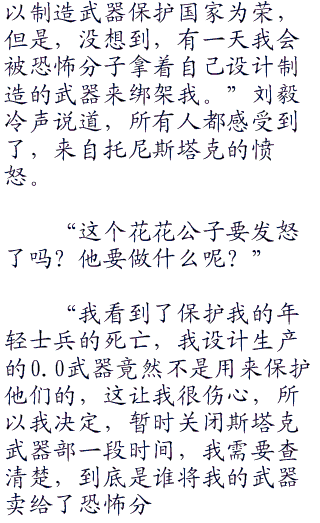 以制造武器保护国家为荣，
但是，没想到，有一天我会
被恐怖分子拿着自己设计制
造的武器来绑架我。”刘毅
冷声说道，所有人都感受到
了，来自托尼斯塔克的愤
怒。
“这个花花公子要发怒
了吗？他要做什么呢？”
“我看到了保护我的年
轻士兵的死亡，我设计生产
的0.0武器竟然不是用来保护
他们的，这让我很伤心，所
以我决定，暂时关闭斯塔克
武器部一段时间，我需要查
清楚，到底是谁将我的武器
卖给了恐怖分